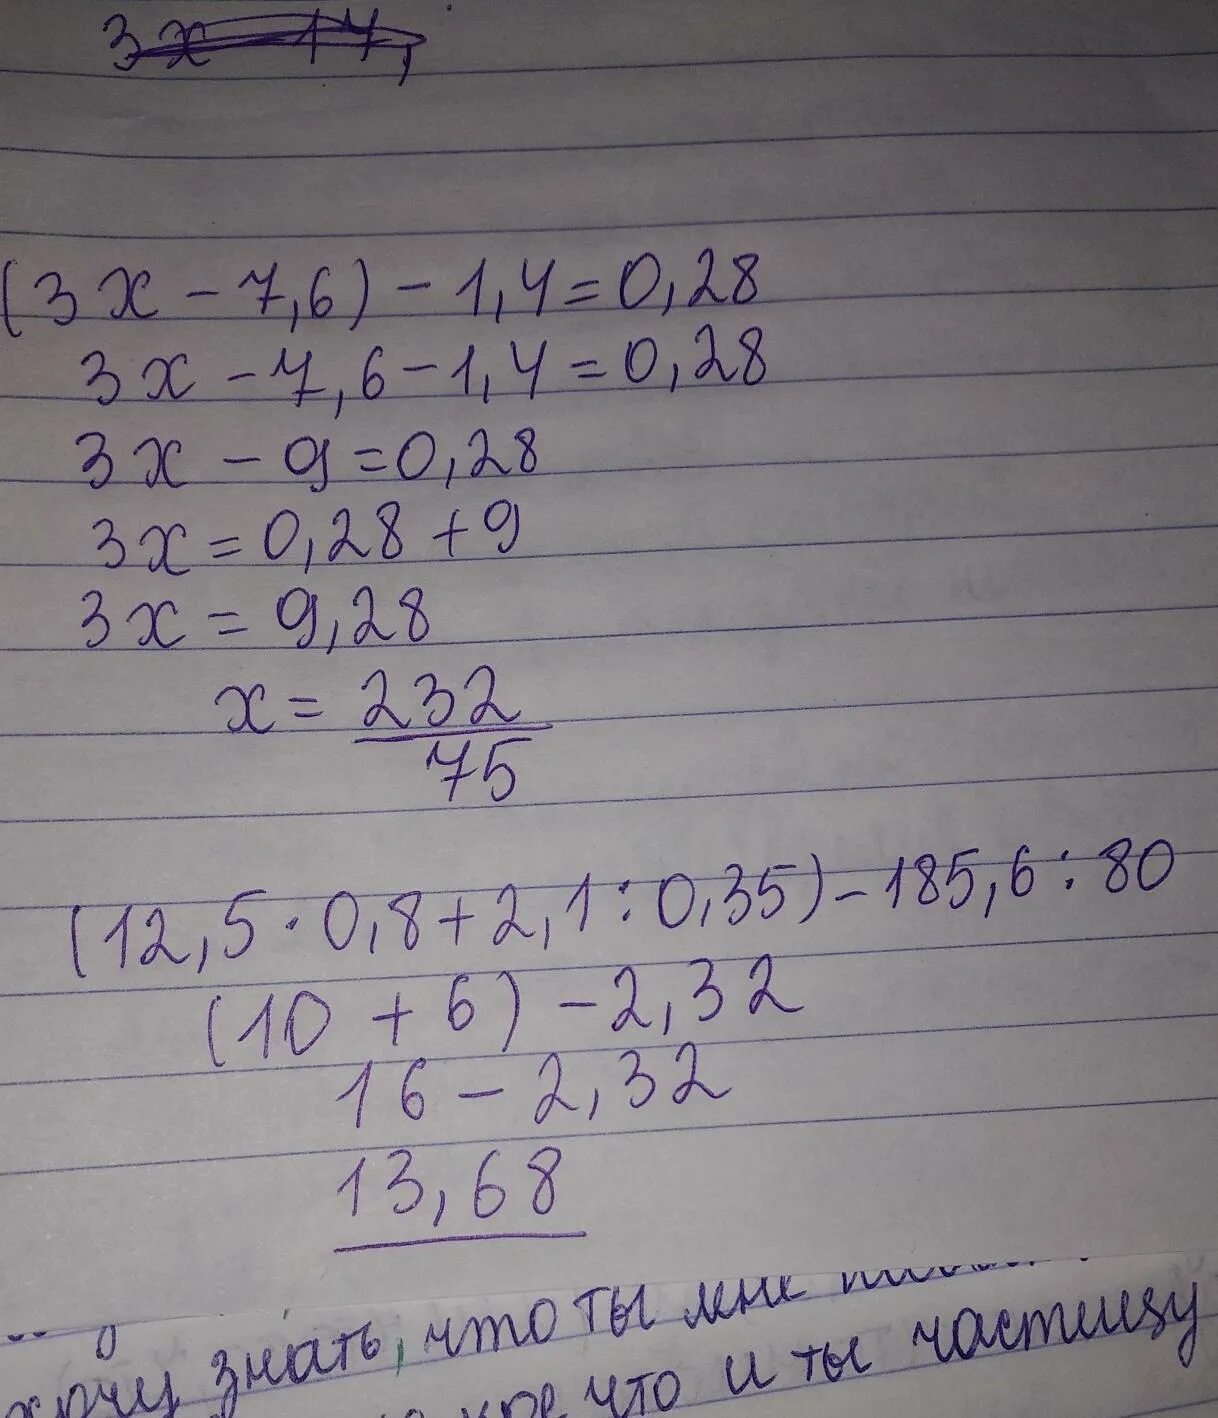 3x - 14,
(3x - 7,6) - 1,4 = 0,28
3x - 7,6 - 1,4 = 0,28
3x - 9 = 0,28
3x = 0,28 + 9
3x = 9,28
x = 232
75
(12,5 · 0,8 + 2,1 : 0,35) - 185,6 : 80
(10 + 6) - 2,32
16 - 2,32
13,68
знать, что ты мне
хочу
что и ты частицу